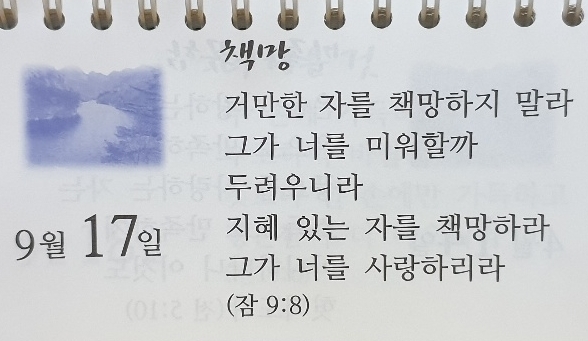 책망
거만한 자를 책망하지 말라
그가 너를 미워할까
두려우니라
지혜 있는 자를 책망하라
그가 너를 사랑하리라
(잠 9:8)
9월 17일